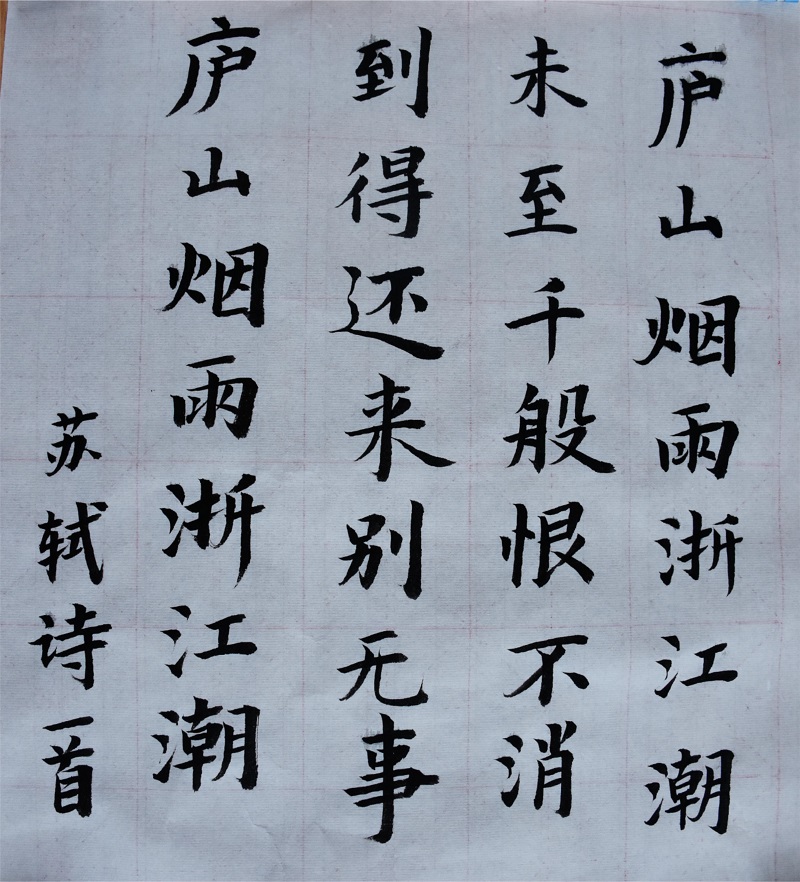 庐山烟雨浙江潮
未至千般恨不消
到得还来别无事
庐山烟雨浙江潮
苏轼诗一首